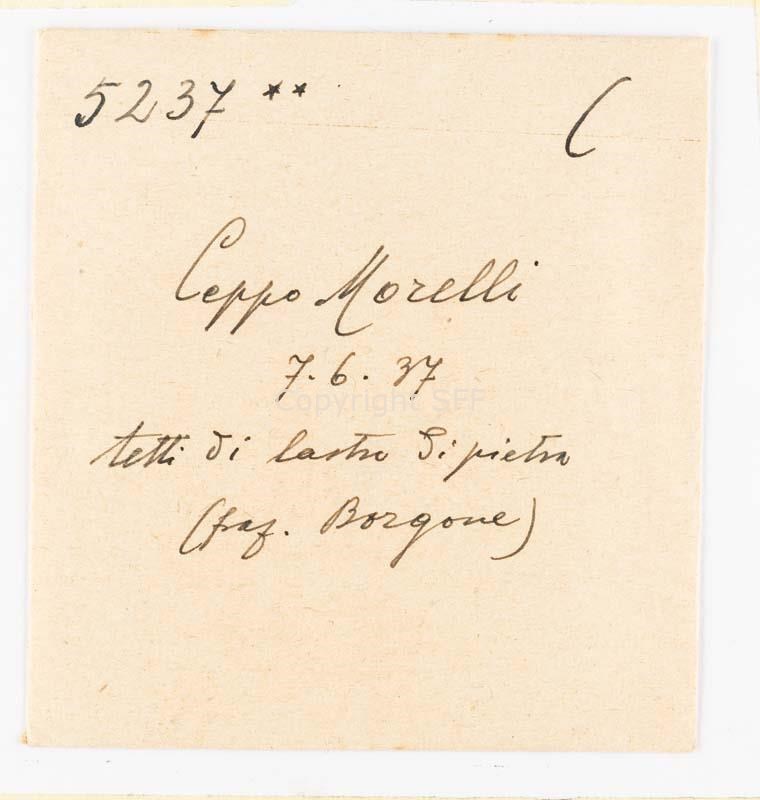 5237 ** (
Ceppo Morelli
7.6.37
Copyright SFF
tetti di lastre di pietra
(fraz. Borgone)